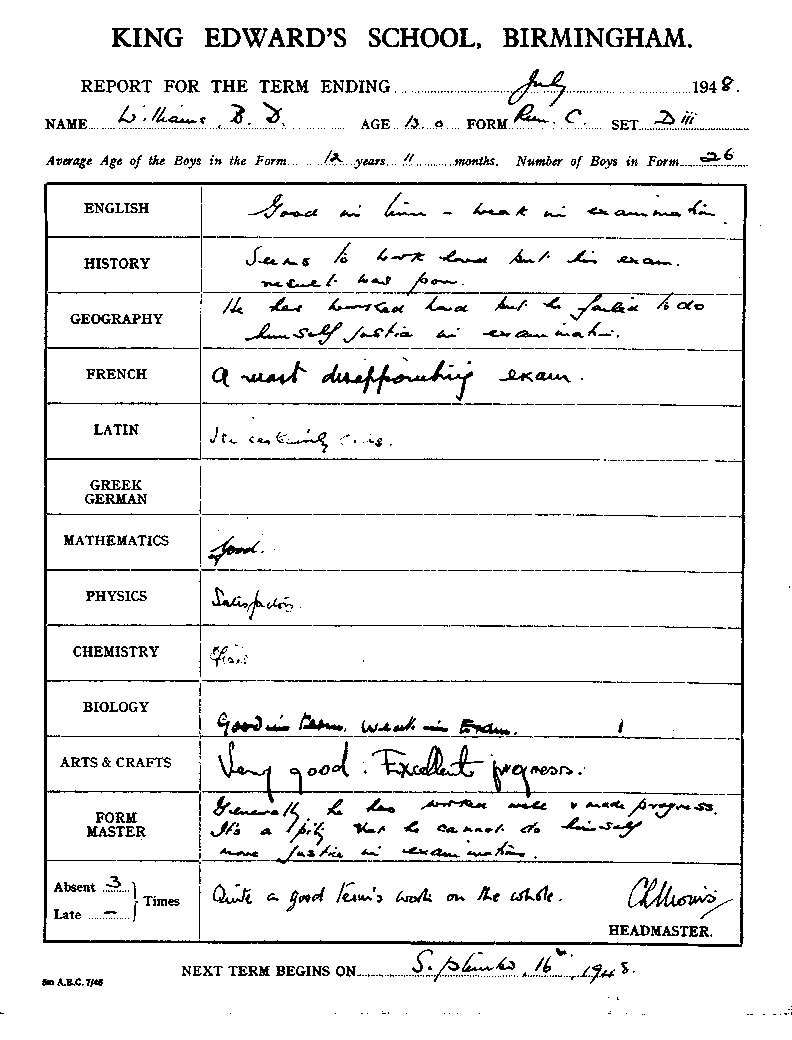 KING EDWARD'S SCHOOL, BIRMINGHAM.
REPORT FOR THE TERM ENDING July 1948.
NAME Williams, B. D. AGE 13.0 FORM Rem. C. SET D iii
Average Age of the Boys in the Form 12 years, 11 months. Number of Boys in Form 26
ENGLISH Good in term - weak in examination.
HISTORY Seems to work hard but his exam.
result was poor.
GEOGRAPHY He has worked hard but he failed to do
himself justice in examination.
FRENCH A most disappointing exam.
LATIN certainly
GREEK
GERMAN
MATHEMATICS Good.
PHYSICS Satisfactory.
CHEMISTRY Fair
BIOLOGY Good in term. Weak in Exam.
ARTS & CRAFTS Very good. Excellent progress.
FORM MASTER Generally he has worked well & made progress.
It's a pity that he cannot do himself
more justice in examinations.
Absent 3 Times
Late -
Quite a good term's work on the whole.
HEADMASTER.
NEXT TERM BEGINS ON September 16th, 1948.
5m A.B.C. 7/46